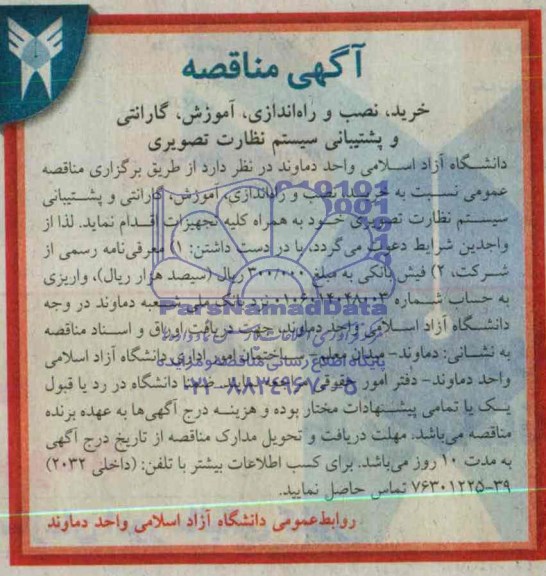 آگهی مناقصه
خرید، نصب و راه‌اندازی، آموزش، گارانتی
و پشتیبانی سیستم نظارت تصویری
دانشگاه آزاد اسلامی واحد دماوند در نظر دارد از طریق برگزاری مناقصه
عمومی نسبت به خرید، نصب و راه‌اندازی، آموزش، گارانتی و پشتیبانی
سیستم نظارت تصویری خود به همراه کلیه تجهیزات اقدام نماید. لذا از
واجدین شرایط دعوت می‌گردد، با در دست داشتن: ۱) معرفی‌نامه رسمی از
شرکت، ۲) فیش بانکی به مبلغ ۳۰۰/۰۰۰ ریال (سیصد هزار ریال)، واریزی
به حساب شماره نزد بانک ملی شعبه دماوند در وجه
دانشگاه آزاد اسلامی واحد دماوند، جهت دریافت اوراق و اسناد مناقصه
به نشانی: دماوند- میدان معلم- ساختمان امور اداری دانشگاه آزاد اسلامی
واحد دماوند- دفتر امور حقوقی دانشگاه در رد یا قبول
یک یا تمامی پیشنهادات مختار بوده و هزینه درج آگهی‌ها به عهده برنده
مناقصه می‌باشد. مهلت دریافت و تحویل مدارک مناقصه از تاریخ درج آگهی
به مدت ۱۰ روز می‌باشد. برای کسب اطلاعات بیشتر با تلفن: (داخلی ۲۰۳۲)
۷۶۳۰۱۲۲۵-۳۹ تماس حاصل نمایید.
روابط‌عمومی دانشگاه آزاد اسلامی واحد دماوند
ParsNamadData
پایگاه اطلاع رسانی مناقصه و مزایده
۰۲۱-۸۸۳۴۹۶۷۰-۵